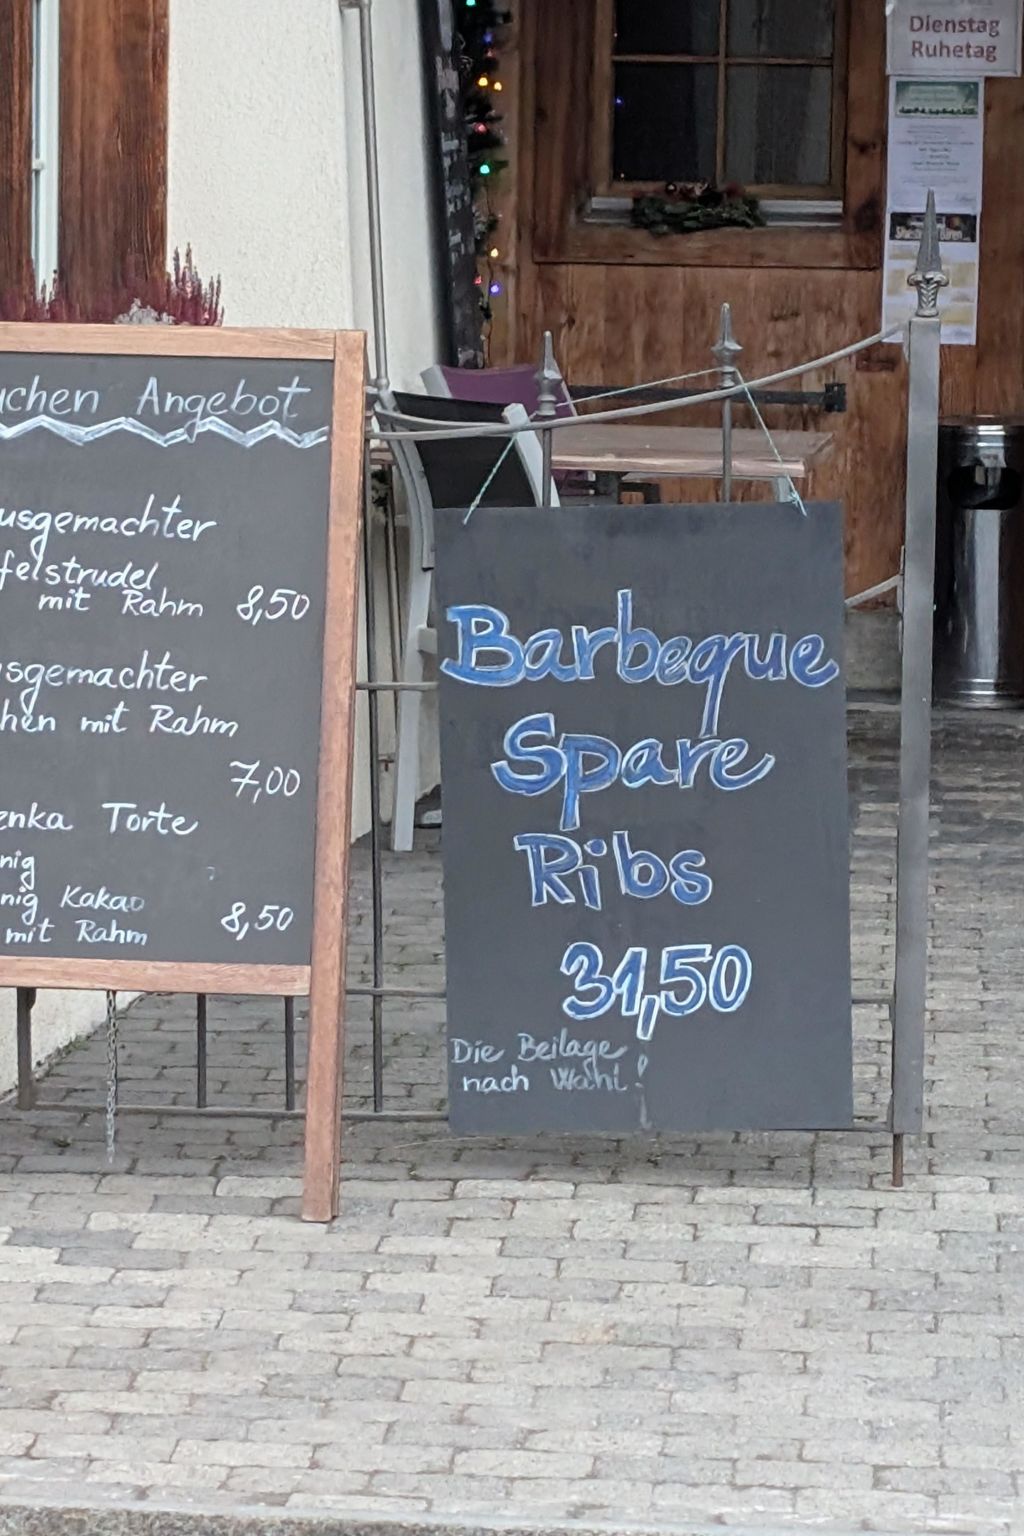 Dienstag
Ruhetag
uchen Angebot
usgemachter
felstrudel
mit Rahm 8,50
sgemachter
hen mit Rahm
7,00
enka Torte
nig
nig Kakao
mit Rahm 8,50
Barbeque
Spare
Ribs
31,50
Die Beilage
nach Wahl!